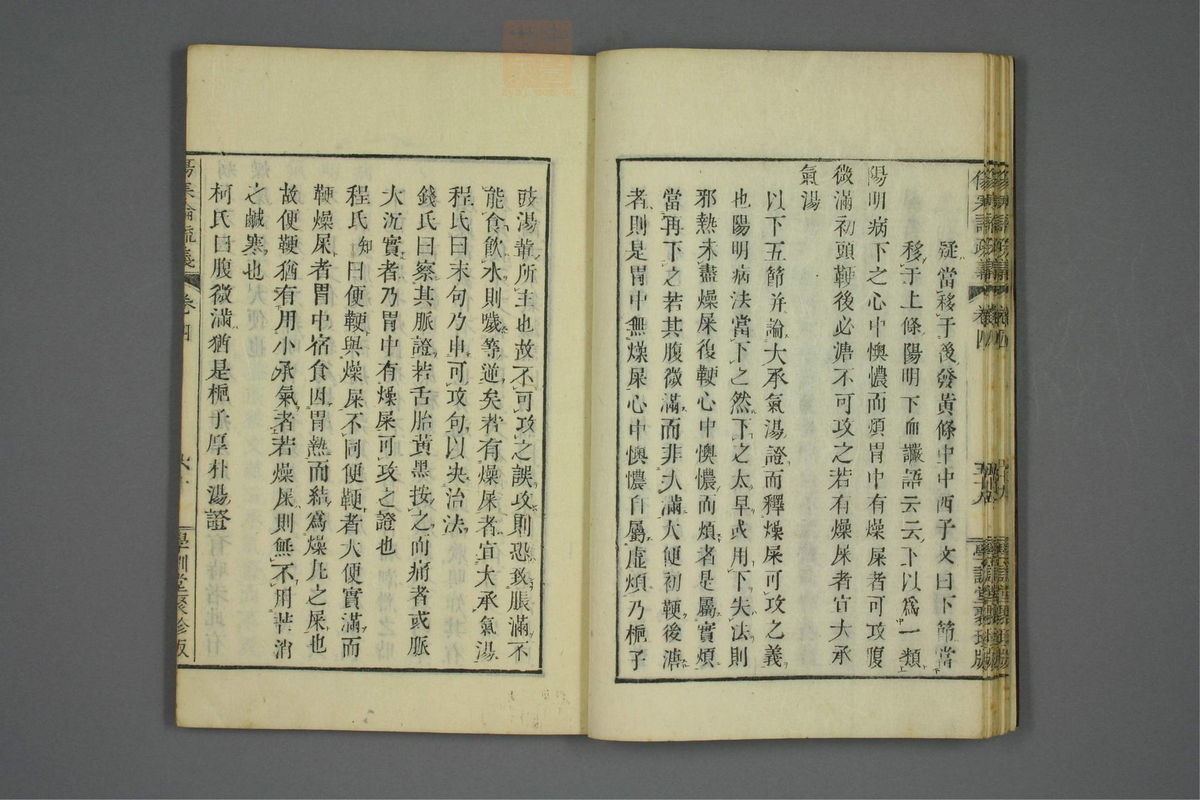 疑當移于後發黃條中中西子文曰下節當
移于上條陽明下血讝語云云下以爲一類
陽明病下之心中懊憹而煩胃中有燥屎者可攻腹
微滿初頭鞕後必溏不可攻之若有燥屎者宜大承
氣湯
以下五節并論大承氣湯證而釋燥屎可攻之義
也陽明病法當下之然下之太早或用下失法則
邪熱未盡燥屎復鞕心中懊憹而煩者是屬實煩
當再下之若其腹微滿而非大滿大便初鞕後溏
者則是胃中無燥屎心中懊憹自屬虛煩乃梔子
豉湯輩所主也故不可攻之誤攻則恐致脹滿不
能食飲水則噦等逆矣若有燥屎者宜大承氣湯
程氏曰末句乃申可攻句以決治法
錢氏曰察其脈證若舌胎黃黑按之而痛者或脈
大沉實者乃胃中有燥屎可攻之證也
程氏知曰便鞕與燥屎不同便鞕者大便實滿而
鞕燥屎者胃中宿食因胃熱而結爲燥丸之屎也
故便鞕猶有用小承氣者若燥屎則無不用芒消
之鹹寒也
柯氏曰腹微滿猶是梔子厚朴湯證
傷寒論疏義
卷四
學訓堂聚珍版